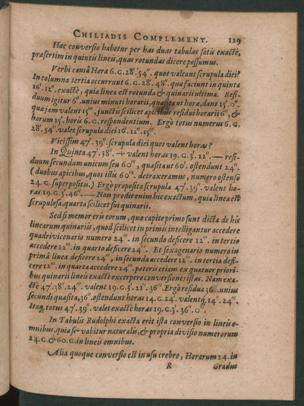 CHILIADIS COMPLEMENT. 129
Hæc conversio habetur per has duas tabulas satis exactè,
præsertim in quintis lineis, quas rotundas dicere possumus.
Verbi causâ Hora 6. G. 28.′ 54.″ quot valeant scrupula diei?
In columna tertia occurrunt 6. G. 28.′ 48.″, quæ faciunt in quinta
16.′ 12.″ exactè, quia linea est rotunda & quinarii ultima. Resi-
duum igitur 6.″ unius minuti horarii, quæsitum hora, dant 15.″ 0.‴
quæ jam valent 15.‴, junctis scilicet apicibus residui horarii 6″, &
horum 15. horis 6. G. respondentium. Ergò totus numerus 6. G.
28.′ 54.″ valet scrupula diei 16.′ 12.″ 15.‴
Vicissim 47.′ 39.″ scrupula diei quot valent horas?
In Quinta 47.′ 38.″ — valent horas 19. G. 3.′ 21.″ — resi-
duum secundum unum seu 60‴, quæsitum 60. ostendunt 24.‴
(duobus apicibus, quos illis 60.‴ detraxeramus, numero ostenso
24. G. suprapositis.) Ergò proposita scrupula 47.′ 39.″ valent ho-
ras 19. G. 3.′ 46.″ — Non prodit enim hîc exactum, quia linea est
scrupulosa, quarta scilicet sui quinarii.
Sed si memores eorum, quæ capite primo sunt dicta de his
linearum quinariis, quod scilicet in primis intelligantur accedere
quadrivicenario numero 24.‴ in secundo deficere 12.‴ in tertio
accedere 12.‴ in quarto deficere 24.‴ Et sexagenario numero in
prima linea deficere 24.‴, in secunda accedere 12.‴ in tertia defi-
cere 12.‴ in quarta accedere 24.‴ poteris etiam ex quatuor priori-
bus quinarii lineis exactè excerpere conversiones istas. Nam exa-
ctè 47.′ 38.″ 24.‴ valent 19. G. 3.′ 21.″ 36.‴ Ergò residua 36.‴ unius
secundi quæsita, 36.‴ ostendunt horas 14. G. 24. valent 14.″ 24.‴
Itaq; totus 47.′ 39.″ valet exactè horas 19. G. 3.′ 36.″ 0.‴
In Tabulis Rudolphi exacta erit ista conversio in lineis o-
mnibus, quia servabitur naturalis, & propria divisio numerorum
24. G. & 60. G. in lineis omnibus.
Alia quoque conversio est in usu crebro, Horarum 24. in
R Gradus